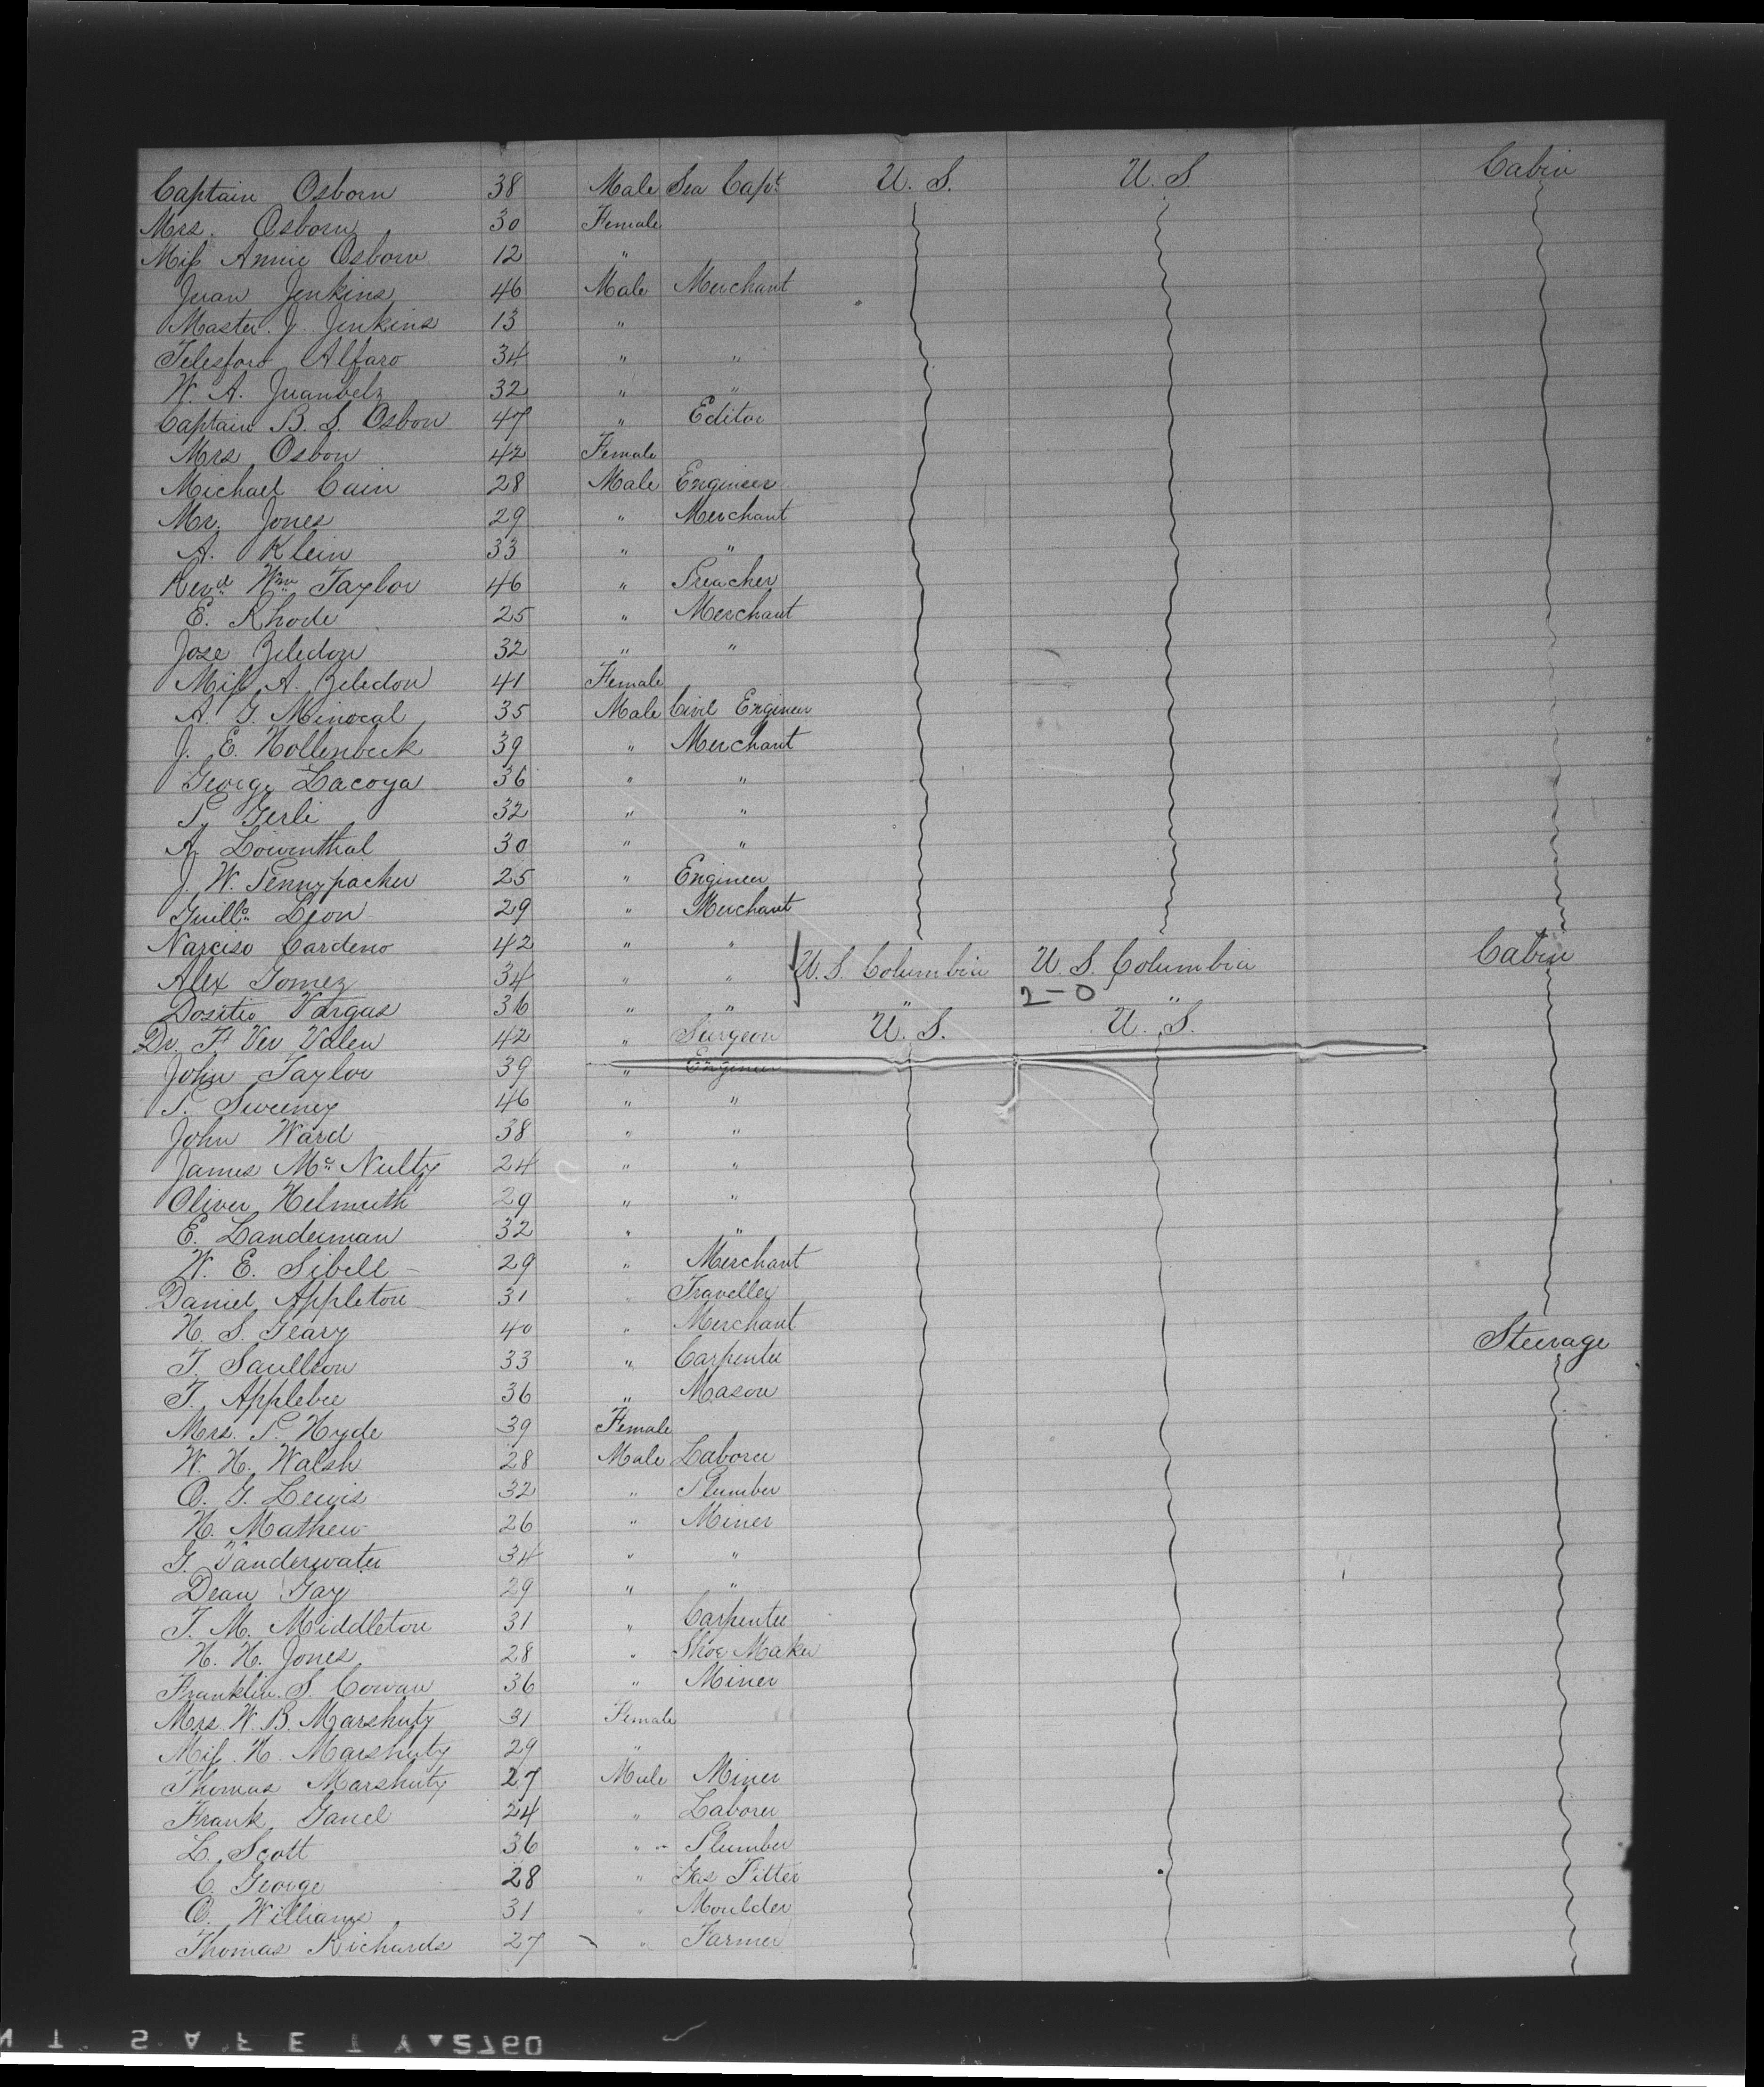 Captain Osborn 38 Male Sea Capt U. S. U. S. Cabin
Mrs. Osborn 30 Female
Miss Annie Osborn 12 "
Juan Jenkins 46 Male Merchant
Master J. Jenkins 13 "
Telesforo Alfaro 34 " "
W. A. 32 " "
Captain B. S. Osbon 47 " Editor
Mrs Osbon 42 Female
Michael Cain 28 Male Engineer
Mr. Jones 29 " Merchant
A. Klein 33 " "
Revd Wm Taylor 46 " Preacher
E. Rhode 25 " Merchant
Jose Zeledon 32 " "
Miss A. Zeledon 41 Female
A. G. Minocal 35 Male Civil Engineer
J. E. Hollenbeck 39 " Merchant
George Lacoya 36 " "
P. Gerli 32 " "
A. Lowenthal 30 " "
J. W. Pennypacker 25 " Engineer
Guillo Leon 29 " Merchant
Narciso Cardeno 42 " " Cabin
Alex Gomez 34 " " U. S. Columbia U. S. Columbia
2-0
Dositio Vargas 36 " " " "
Dr. F. Ver Valen 42 " Surgeon U. S. U. S.
John Taylor 39 " Engineer
P. Sweeney 46 " "
John Ward 38 " "
James Mc Nulty 24 " "
Oliver Helmuth 29 " "
E. Landerman 32 " "
W. E. Sibell 29 " Merchant
Daniel Appleton 31 " Traveller
H. S. Geary 40 " Merchant Steerage
T. Saullson 33 " Carpenter
T. Applebee 36 " Mason
Mrs. P. Hyde 39 Female
W. H. Walsh 28 Male Laborer
O. G. Lewis 32 " Plumber
H. Mathew 26 " Miner
G. Vanderwater 34 " "
Dean Gay 29 " "
T. M. Middleton 31 " Carpenter
H. H. Jones 28 " Shoe Maker
Franklin S. Cowan 36 " Miner
Mrs. W. B. Marshuty 31 Female
Miss H. Marshuty 29 "
Thomas Marshuty 27 Male Miner
Frank 24 " Laborer
L. Scott 36 " Plumber
C. George 28 " Gas Fitter
O. Williams 31 " Moulder
Thomas Richards 27 " Farmer
SAFETY▲2760